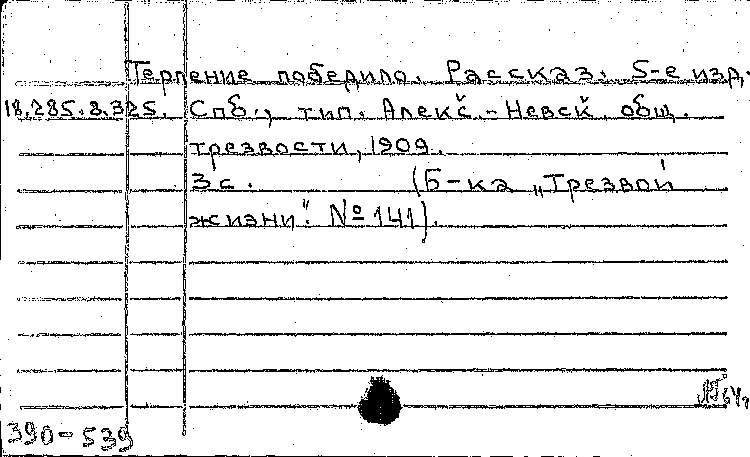 Терпение победило. Рассказ. 5-е изд.
18.285.8.325. Спб., тип. Алекс.-Невск. общ.
трезвости, 1909.
3 с. (Б-ка „Трезвой
жизни". № 141).
390-539